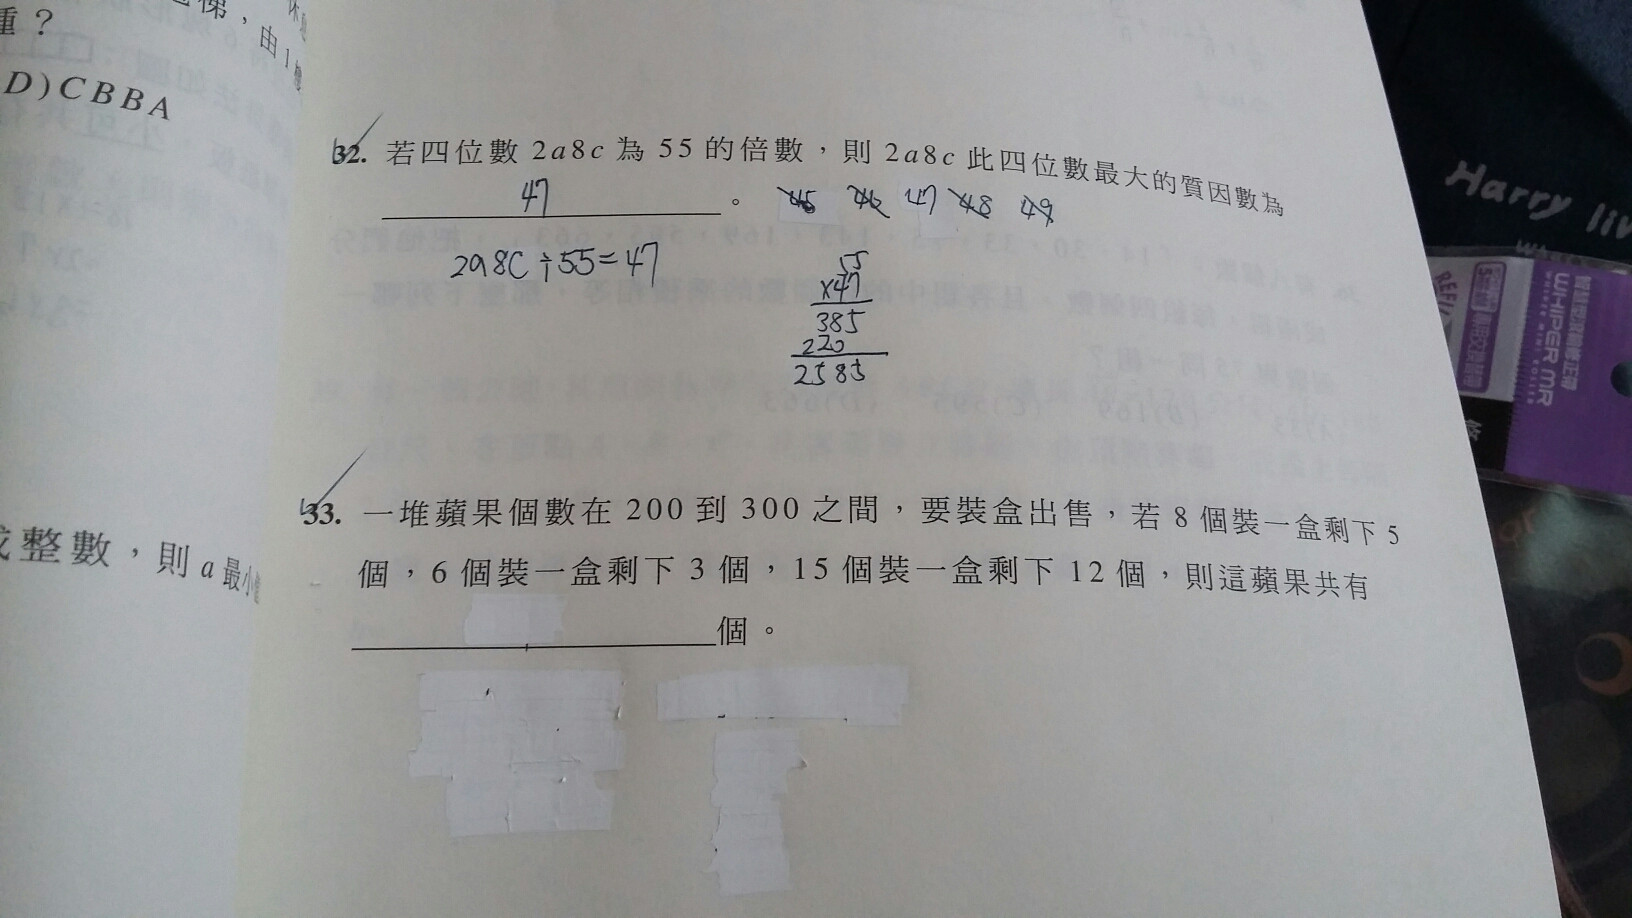 重？
D)CBBA
32. 若四位數 2a8c 為 55 的倍數，則 2a8c 此四位數最大的質因數為
47 。 45 46 47 48 49
2a8c÷55=47
55
×47
385
220
2585
33. 一堆蘋果個數在 200 到 300 之間，要裝盒出售，若 8 個裝一盒剩下 5
個，6 個裝一盒剩下 3 個，15 個裝一盒剩下 12 個，則這蘋果共有
個。
整數，則 a 最小
Harry
WHIPER MR